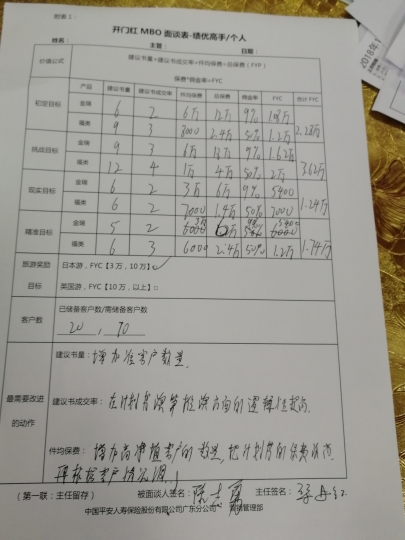 附表1:
开门红 MBO 面谈表-绩优高手/个人
姓名: 主管: 日期:
价值公式 建议书量*建议书成交率*件均保费=总保费(FYP)
保费*佣金率=FYC
产品 建议书量 建议书成交率 件均保费 总保费 佣金率 FYC 合计 FYC
初定目标 金瑞 6 2 6万 12万 9% 1.08万 2.28万
福类 9 3 8000 2.4万 50% 1.2万
挑战目标 金瑞 9 3 6万 18万 9% 1.62万 3.62万
福类 12 4 1万 4万 50% 2万
现实目标 金瑞 6 2 3万 6万 9% 5400 1.24万
福类 6 2 7000 1.4万 50% 7000
精准目标 金瑞 5 2 6万 5400 1.74万
福类 6 3 6000 2.4万 50% 1.2万
旅游奖励 日本游,FYC【3万,10万】
目标 英国游,FYC【10万,以上】□
客户数 已储备客户数/需储备客户数
20 , 70
最需要改进的动作
建议书量: 增加准客户数量
建议书成交率: 在计划书演算
件均保费: 增加高 客户的数量, 把计划书的保费
再根据客户情况调
(第一联:主任留存) 被面谈人签名: 陈 主任签名:
中国平安人寿保险股份有限公司广东分公司 管理部